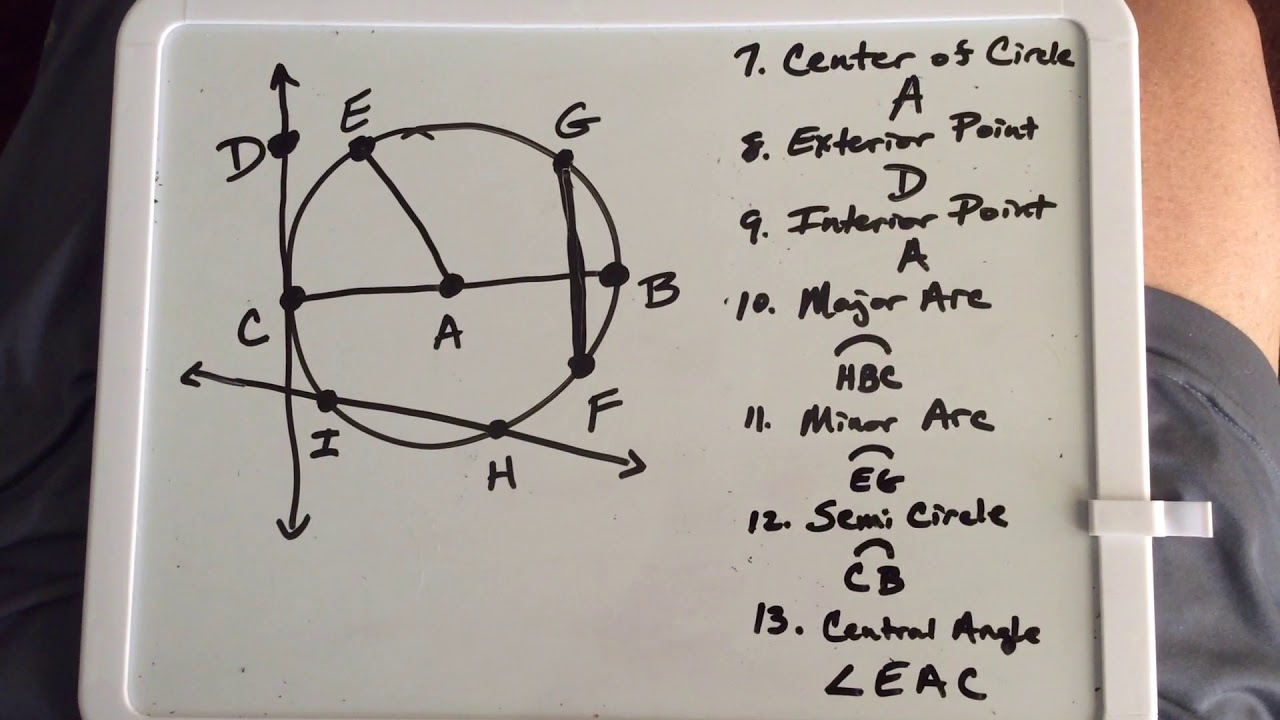 E
G
D
B
C
A
F
I
H
7. Center of Circle
A
8. Exterior Point
D
9. Interior Point
A
10. Major Arc
HBC
11. Minor Arc
EG
12. Semi Circle
CB
13. Central Angle
∠EAC